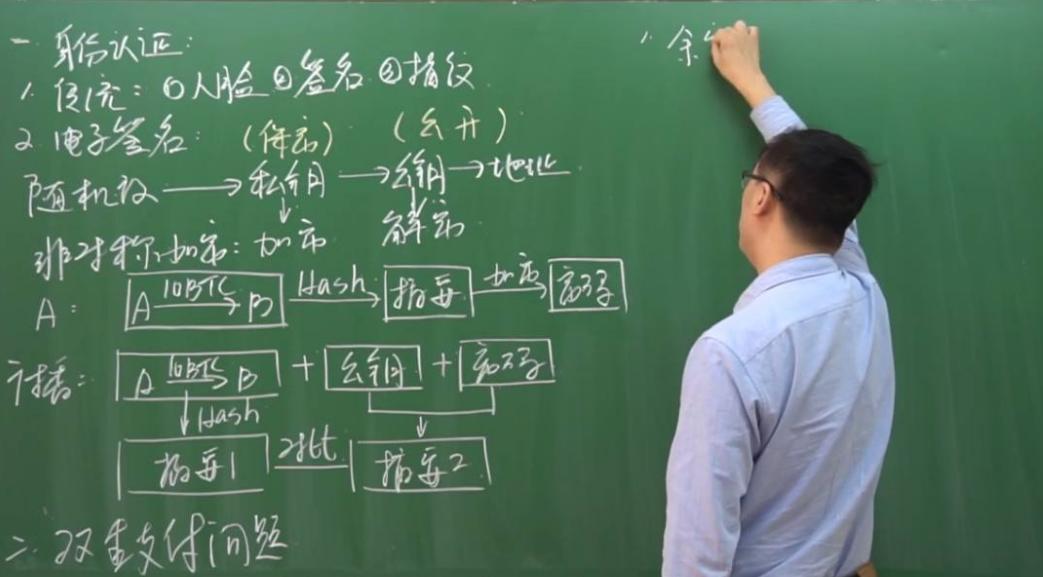 一. 身份认证:
1. 传统: ①人脸 ②签名 ③指纹
2. 电子签名: (保密) (公开)
随机数 → 私钥 → 公钥 → 地址
↓ ↓
非对称加密: 加密 解密
A: A 10BTC → B Hash → 摘要 加密 → 密码
广播: A 10BTC → B + 公钥 + 密码
↓ Hash ↓
摘要1 对比 摘要2
二. 双重支付问题
1. 余